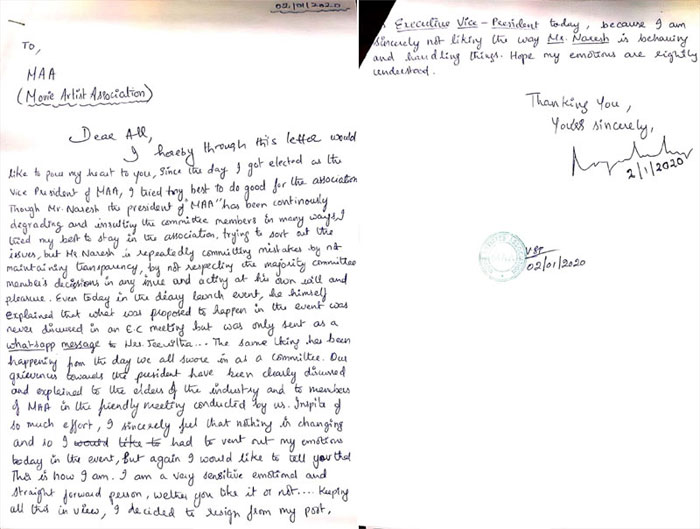 02/01/2020
To,
MAA
(Movie Artist Association)
Dear All,
I hereby through this letter would
like to pour my heart to you, Since the day I got elected as the
Vice President of MAA, I tried my best to do good for the association
Though Mr. Naresh the president of "MAA" has been continously
degrading and insulting the committee members in many ways I
tried my best to stay in the association, trying to sort out the
issues, but Mr Naresh is repeatedly committing mistakes by not
maintaining transparency, by not respecting the majority committee
member's decisions in any issue and acting at his own will and
pleasure. Even today in the diary launch event, he himself
explained that what was proposed to happen in the event was
never discussed in an E.C meeting but was only sent as a
whatsapp message to Mrs Jeevitha... The same thing has been
happening from the day we all swore in as a committee. Our
grievences towards the president have been clearly discussed
and explained to the elders of the industry and to members
of MAA in the friendly meeting conducted by us. Inspite of
so much effort, I sincerely feel that nothing is changing
and so I would like to had to vent out my emotions
today in the event, but again I would like to tell you that
This is how I am. I am a very sensitive emotional and
straight forward person, wether you like it or not.... Keeping
all this in view, I decided to resign from my post,
Executive Vice-President today, because I am
sincerely not liking the way Mr. Naresh is behaving
and handling things. Hope my emotions are rightly
understood.
Thanking You,
Yours sincerely,
2/1/2020
02/01/2020